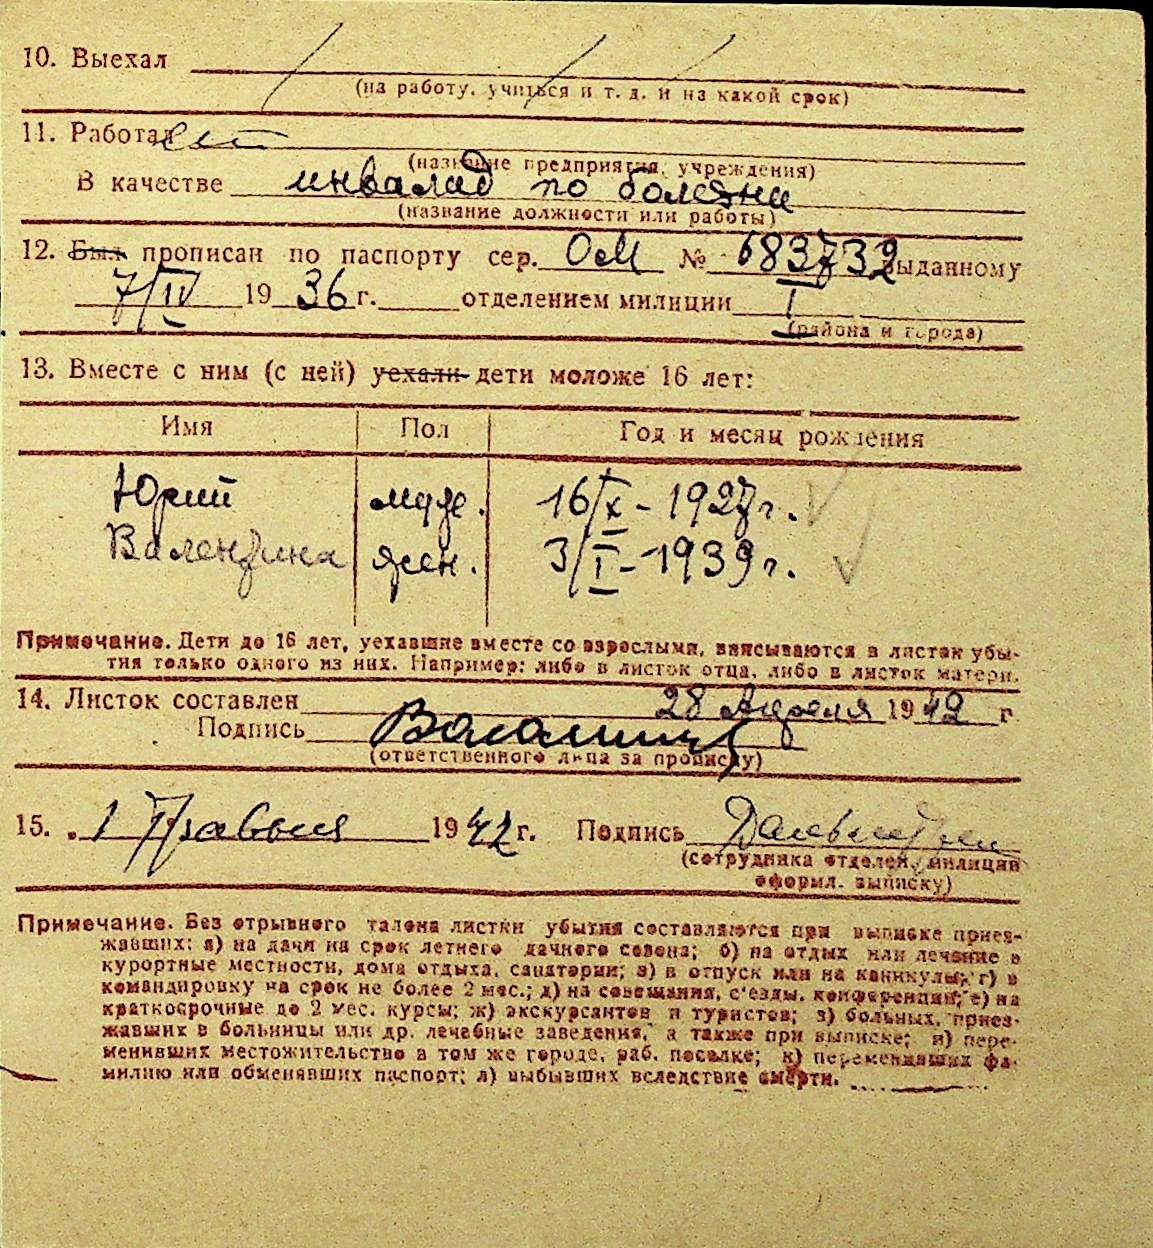 10. Выехал
(на работу, учиться и т. д. и на какой срок)
11. Работал
(название предприятия, учреждения)
В качестве инвалид по болезни
(название должности или работы)
12. Был прописан по паспорту сер. ОМ № 683732 выданному
7/IV 1936 г. отделением милиции I
(района и города)
13. Вместе с ним (с ней) уехали дети моложе 16 лет:
Имя Пол Год и месяц рождения
Юрий муж. 16/X - 1927 г.
Валентина жен. 3/I - 1939 г.
Примечание. Дети до 16 лет, уехавшие вместе со взрослыми, вписываются в листок убы-
тия только одного из них. Например: либо в листок отца, либо в листок матери.
14. Листок составлен 28 Апреля 1942 г
Подпись
(ответственного лица за прописку)
15. 1 Травня 1942 г. Подпись
(сотрудника отделен. милиции
оформл. выписку)
Примечание. Без отрывного талона листки убытия составляются при выписке приез-
жавших: а) на дачи на срок летнего дачного сезона; б) на отдых или лечение в
курортные местности, дома отдыха, санатории; в) в отпуск или на каникулы; г) в
командировку на срок не более 2 мес.; д) на совещания, с'езды, конференции; е) на
краткосрочные до 2 мес. курсы; ж) экскурсантов и туристов; з) больных, приез-
жавших в больницы или др. лечебные заведения, а также при выписке; и) пере-
менивших местожительство в том же городе, раб. поселке; к) переменивших фа-
милию или обменявших паспорт; л) выбывших вследствие смерти.